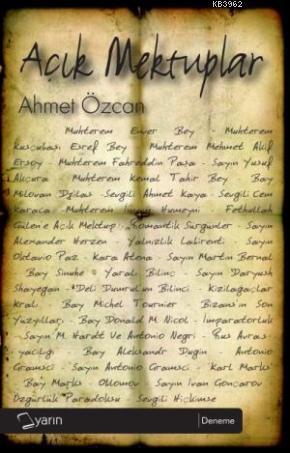 KB3962
Açık Mektuplar
Ahmet Özcan
Muhterem Enver Bey - Muhterem
Kuşçubaşı Eşref Bey - Muhterem Mehmet Akif
Ersoy - Muhterem Fahreddin Paşa - Sayın Yusuf
Akçura - Muhterem Kemal Tahir Bey - Bay
Milovan Djilas - Sevgili Ahmet Kaya - Sevgili Cem
Karaca - Muhterem Humeyni - Fethullah
Gülen'e Açık Mektup - Romantik Sürgünler - Sayın
Alexander Herzen - Yalnızlık Labirenti - Sayın
Oktavio Paz - Kara Atena - Sayın Martin Bernal
- Bay Sinuhe - Yaralı Bilinç - Sayın Daryush
Shayegan - "Deli Dumrul'un Bilinci - Kızılağaçlar
Kralı - Bay Michel Tournier - Bizans'ın Son
Yüzyılları - Bay Donald M. Nicol - İmparatorluk
- Sayın M. Hardt Ve Antonio Negri - Rus Avras-
yacılığı - Bay Aleksandr Dugin - Antonio
Gramsci - Sayın Antonio Gramsci - Karl Marks
- Bay Marks - Oblomov - Sayın Ivan Gonçarov -
Özgürlük Paradoksu - Sevgili Hiçkimse
yarın
Deneme